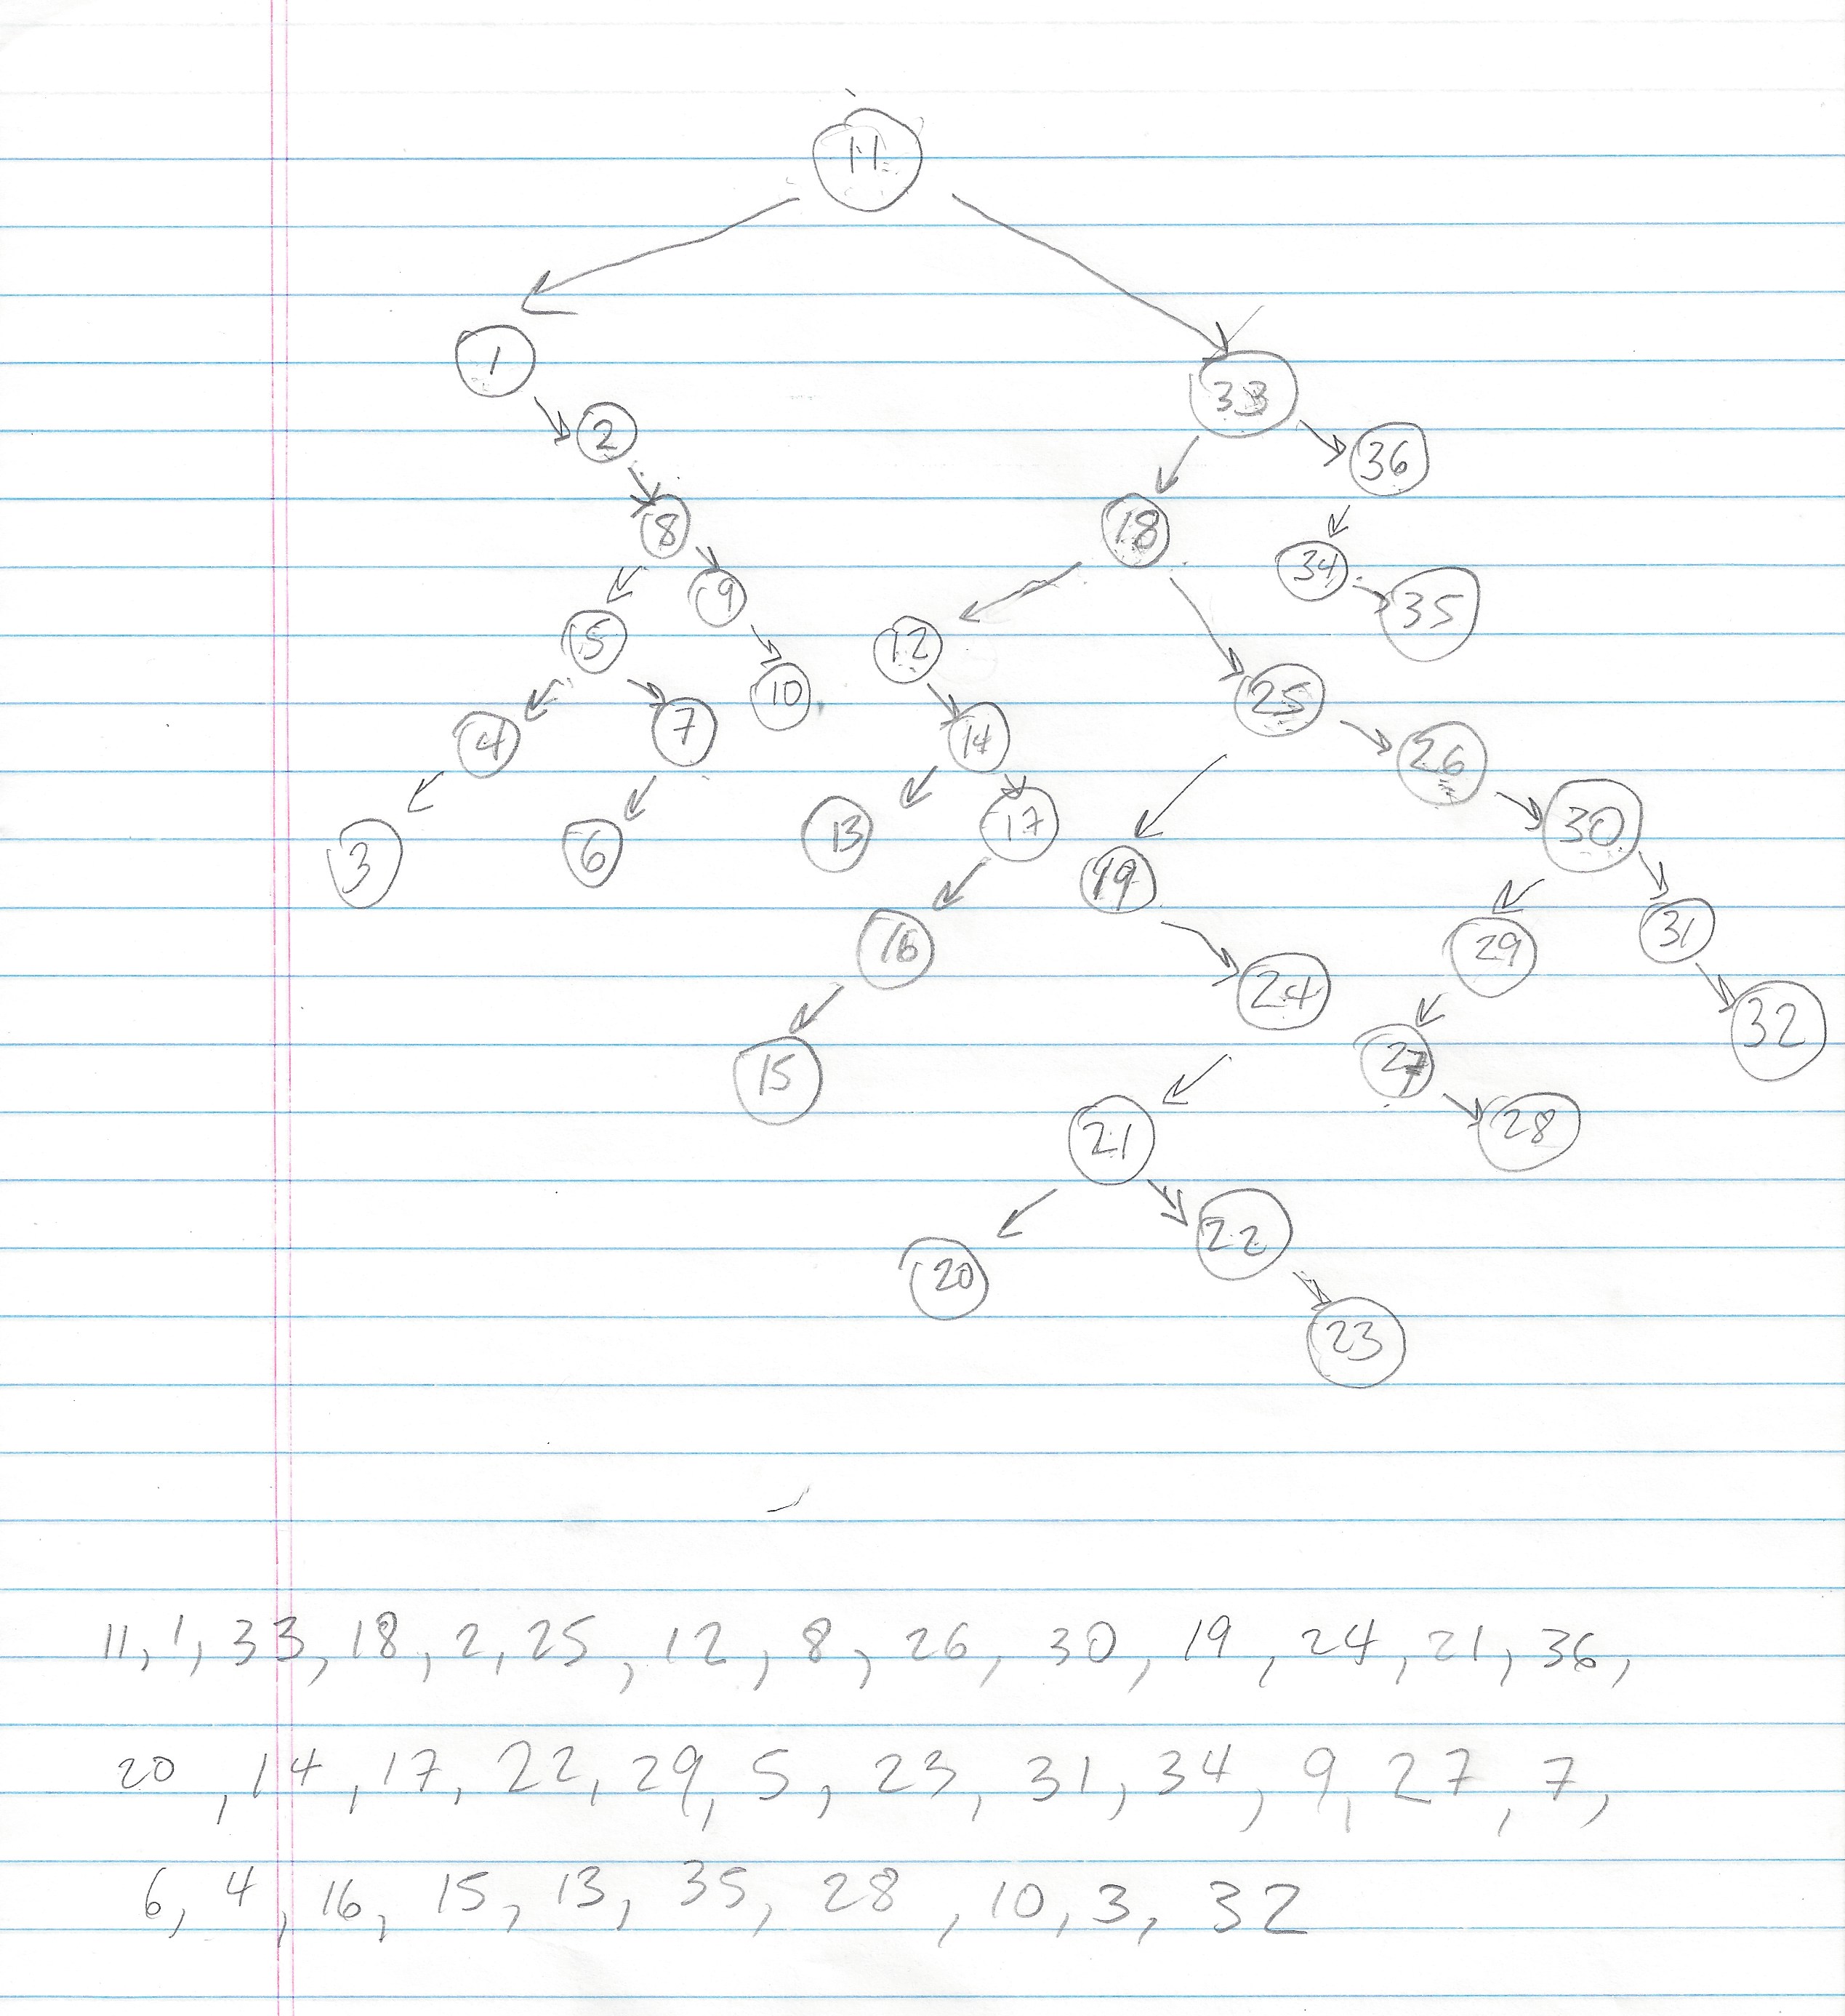 11
1
33
2
36
8
18
34
9
35
5
12
10
25
4
7
14
26
3
6
13
17
30
19
16
29
31
24
15
27
32
21
28
20
22
23
11, 1, 33, 18, 2, 25, 12, 8, 26, 30, 19, 24, 21, 36,
20, 14, 17, 22, 29, 5, 23, 31, 34, 9, 27, 7,
6, 4, 16, 15, 13, 35, 28, 10, 3, 32